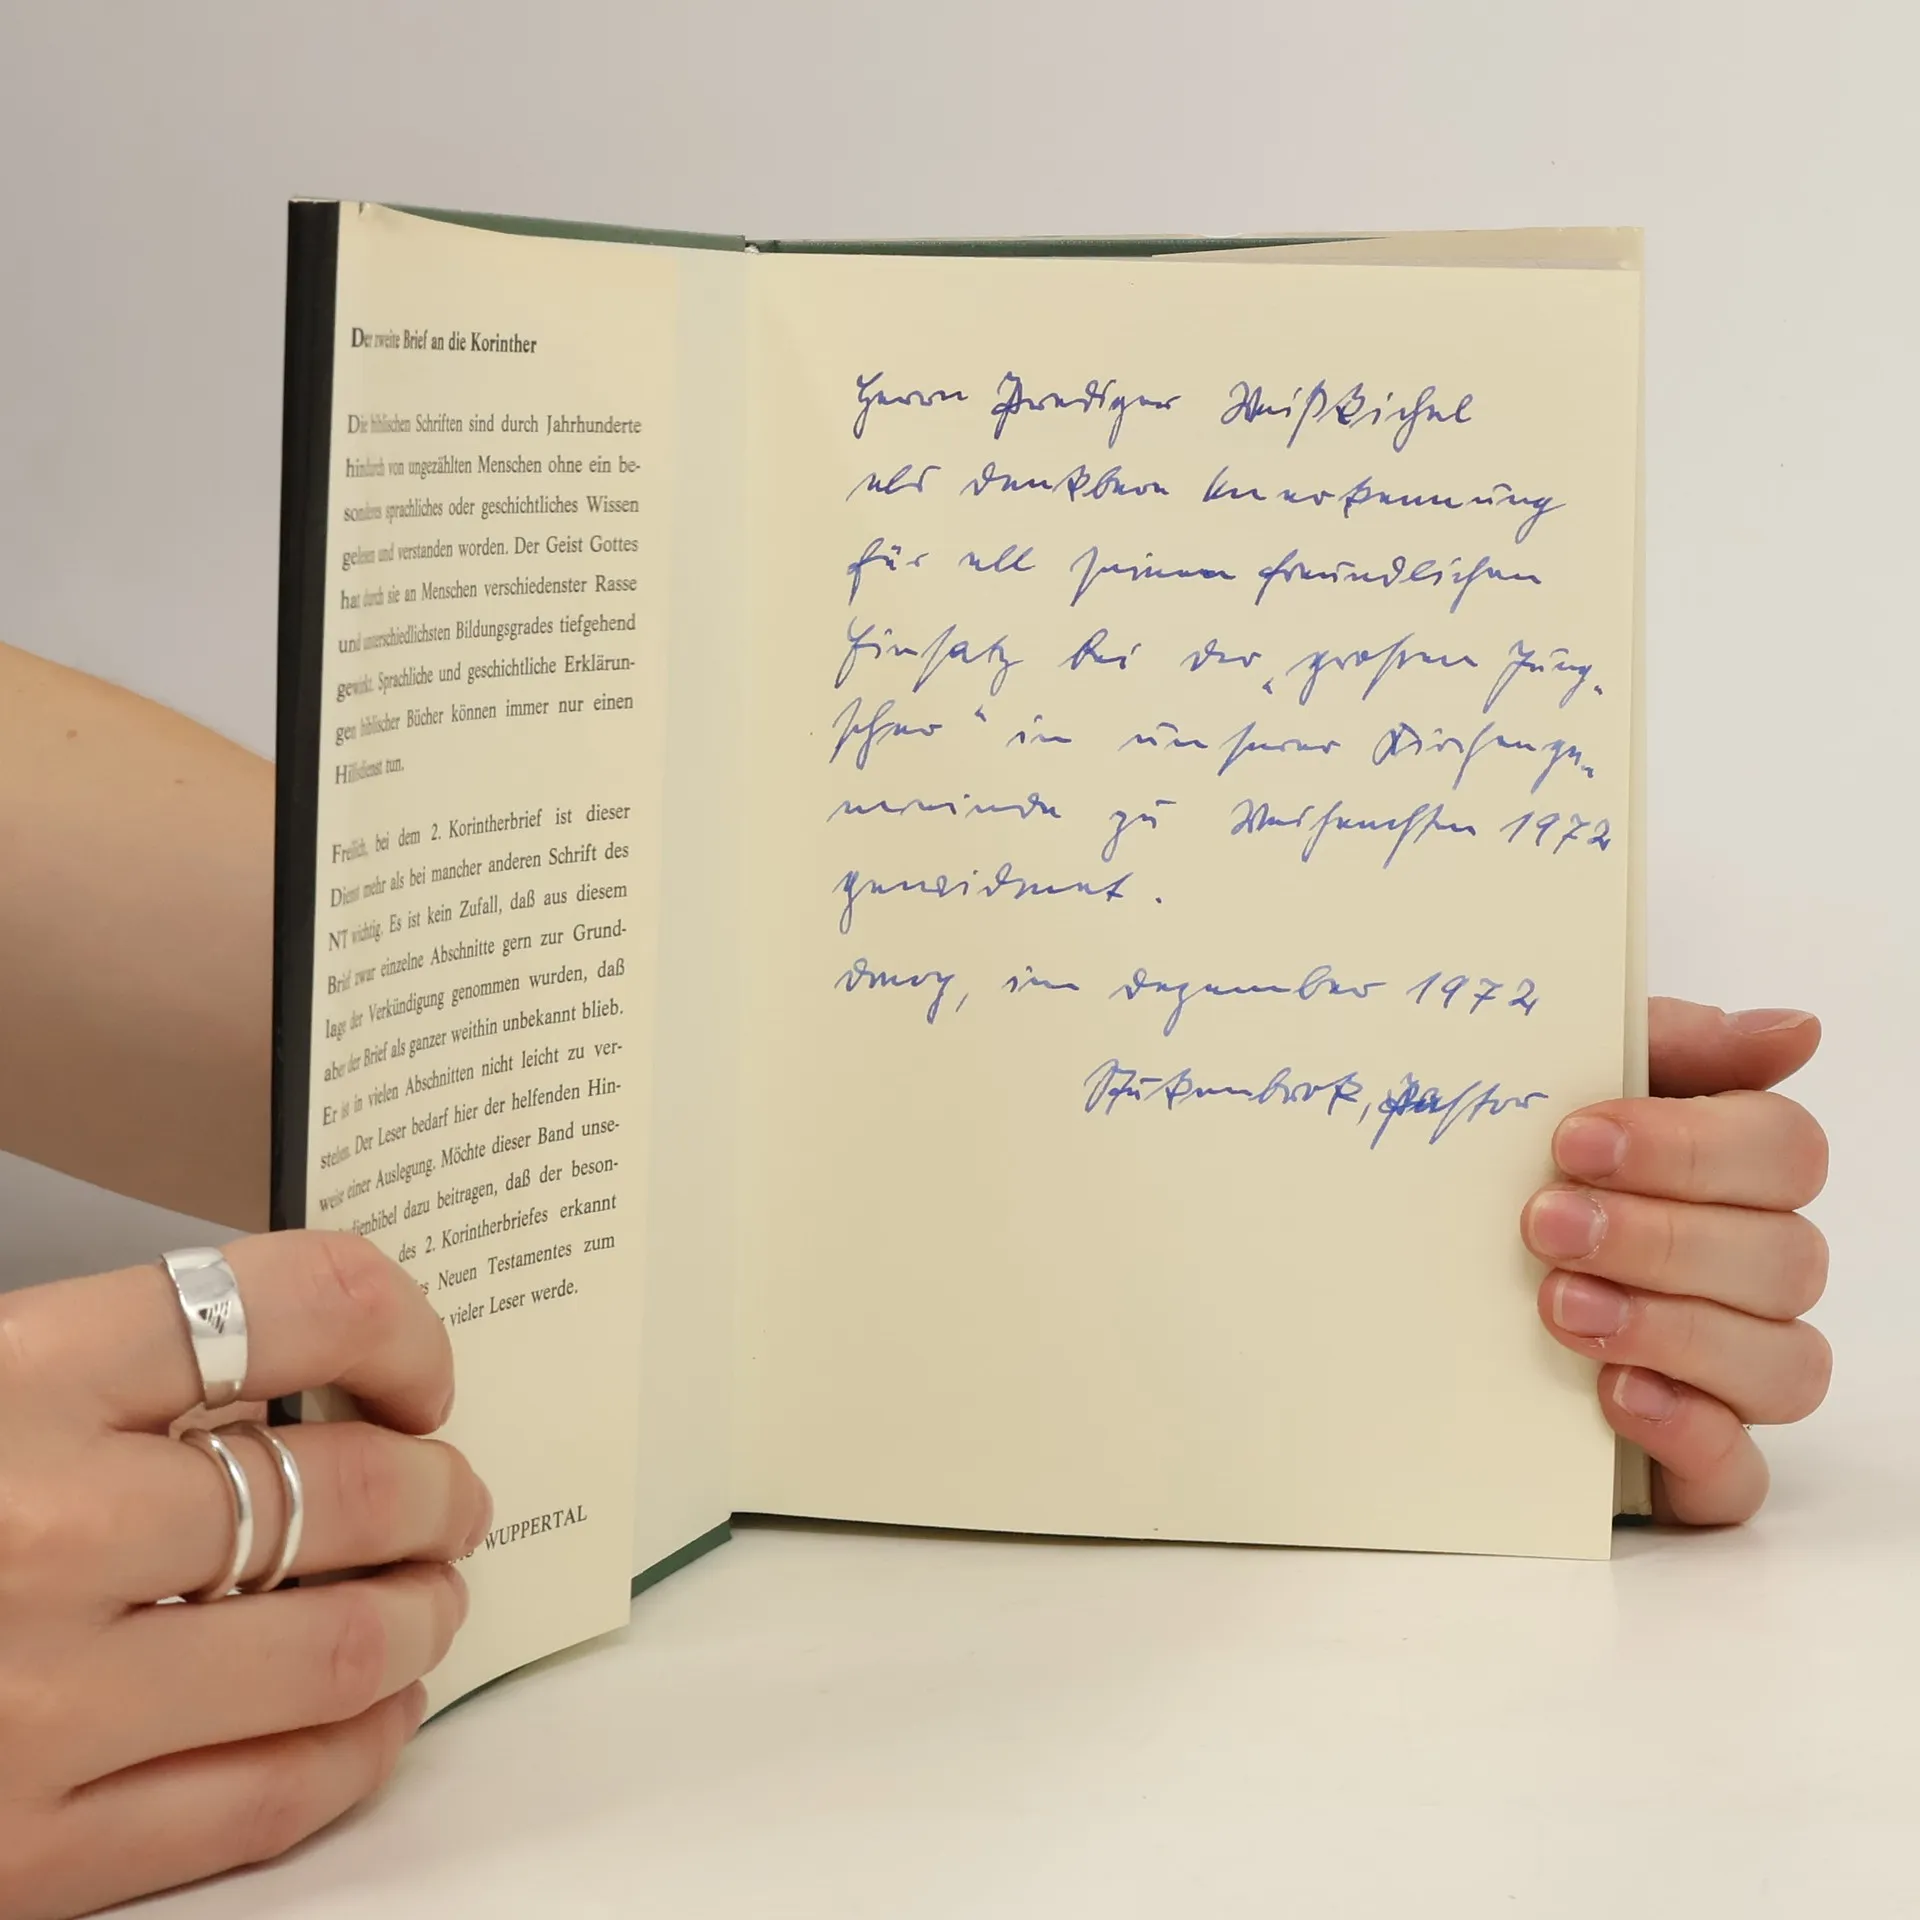 Der zweite Brief an die Korinther
Die biblischen Schriften sind durch Jahrhunderte
hindurch von ungezählten Menschen ohne ein be-
sonderes sprachliches oder geschichtliches Wissen
gelesen und verstanden worden. Der Geist Gottes
hat durch sie an Menschen verschiedenster Rasse
und unterschiedlichsten Bildungsgrades tiefgehend
gewirkt. Sprachliche und geschichtliche Erklärun-
gen biblischer Bücher können immer nur einen
Hilfsdienst tun.
Freilich, bei dem 2. Korintherbrief ist dieser
Dienst mehr als bei mancher anderen Schrift des
NT wichtig. Es ist kein Zufall, daß aus diesem
Brief zwar einzelne Abschnitte gern zur Grund-
lage der Verkündigung genommen wurden, daß
aber der Brief als ganzer weithin unbekannt blieb.
Er ist in vielen Abschnitten nicht leicht zu ver-
stehen. Der Leser bedarf hier der helfenden Hin-
weise einer Auslegung. Möchte dieser Band unse-
dienbibel dazu beitragen, daß der beson-
des 2. Korintherbriefes erkannt
Neuen Testamentes zum
vieler Leser werde.
WUPPERTAL
Herrn Prediger
als dankbare Anerkennung
für all seinen freundlichen
Einsatz bei der „großen Jung„
schar“ in unserer Kirchenge„
meinde zu Weihnachten 1972
gewidmet.
im Dezember 1972
Stukenbrok, Pastor